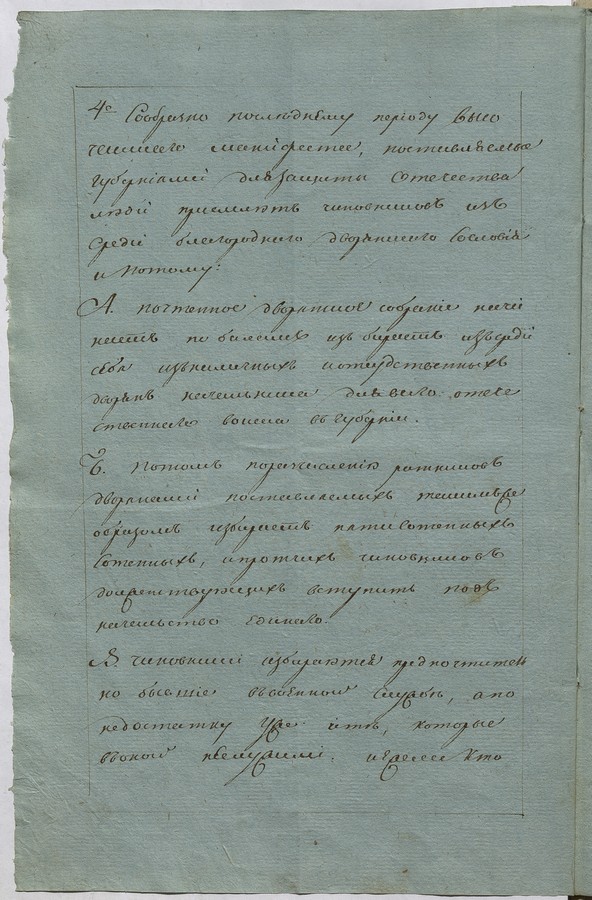 4е Сообразно последнему периоду высо
чайшего манифеста, поставляемые
губерніями для защиты Отечества
люди приемлютъ чиновниковъ изъ
среди благороднаго дворянскаго сословія
и потому:
А. почтенное дворянское собраніе начи
наетъ по баламъ избирать изъ среди
себя изъ наличныхъ и отсудственныхъ
дворянъ начальника для всего отече
ственнаго воиска въ губерніи.
Б. Потомъ по разчисленію ратниковъ
дворянами поставляемыхъ таким же
образомъ избираетъ пятисотенныхъ
сотенныхъ, и протчихъ чиновниковъ
долженствующихъ вступить подъ
начальство единаго.
В. чиновники избираются предпочтитель
но бывшіе въ военной службѣ, а по
недостатку уже и тѣ, которые
въ оной не служили. и ежели кто